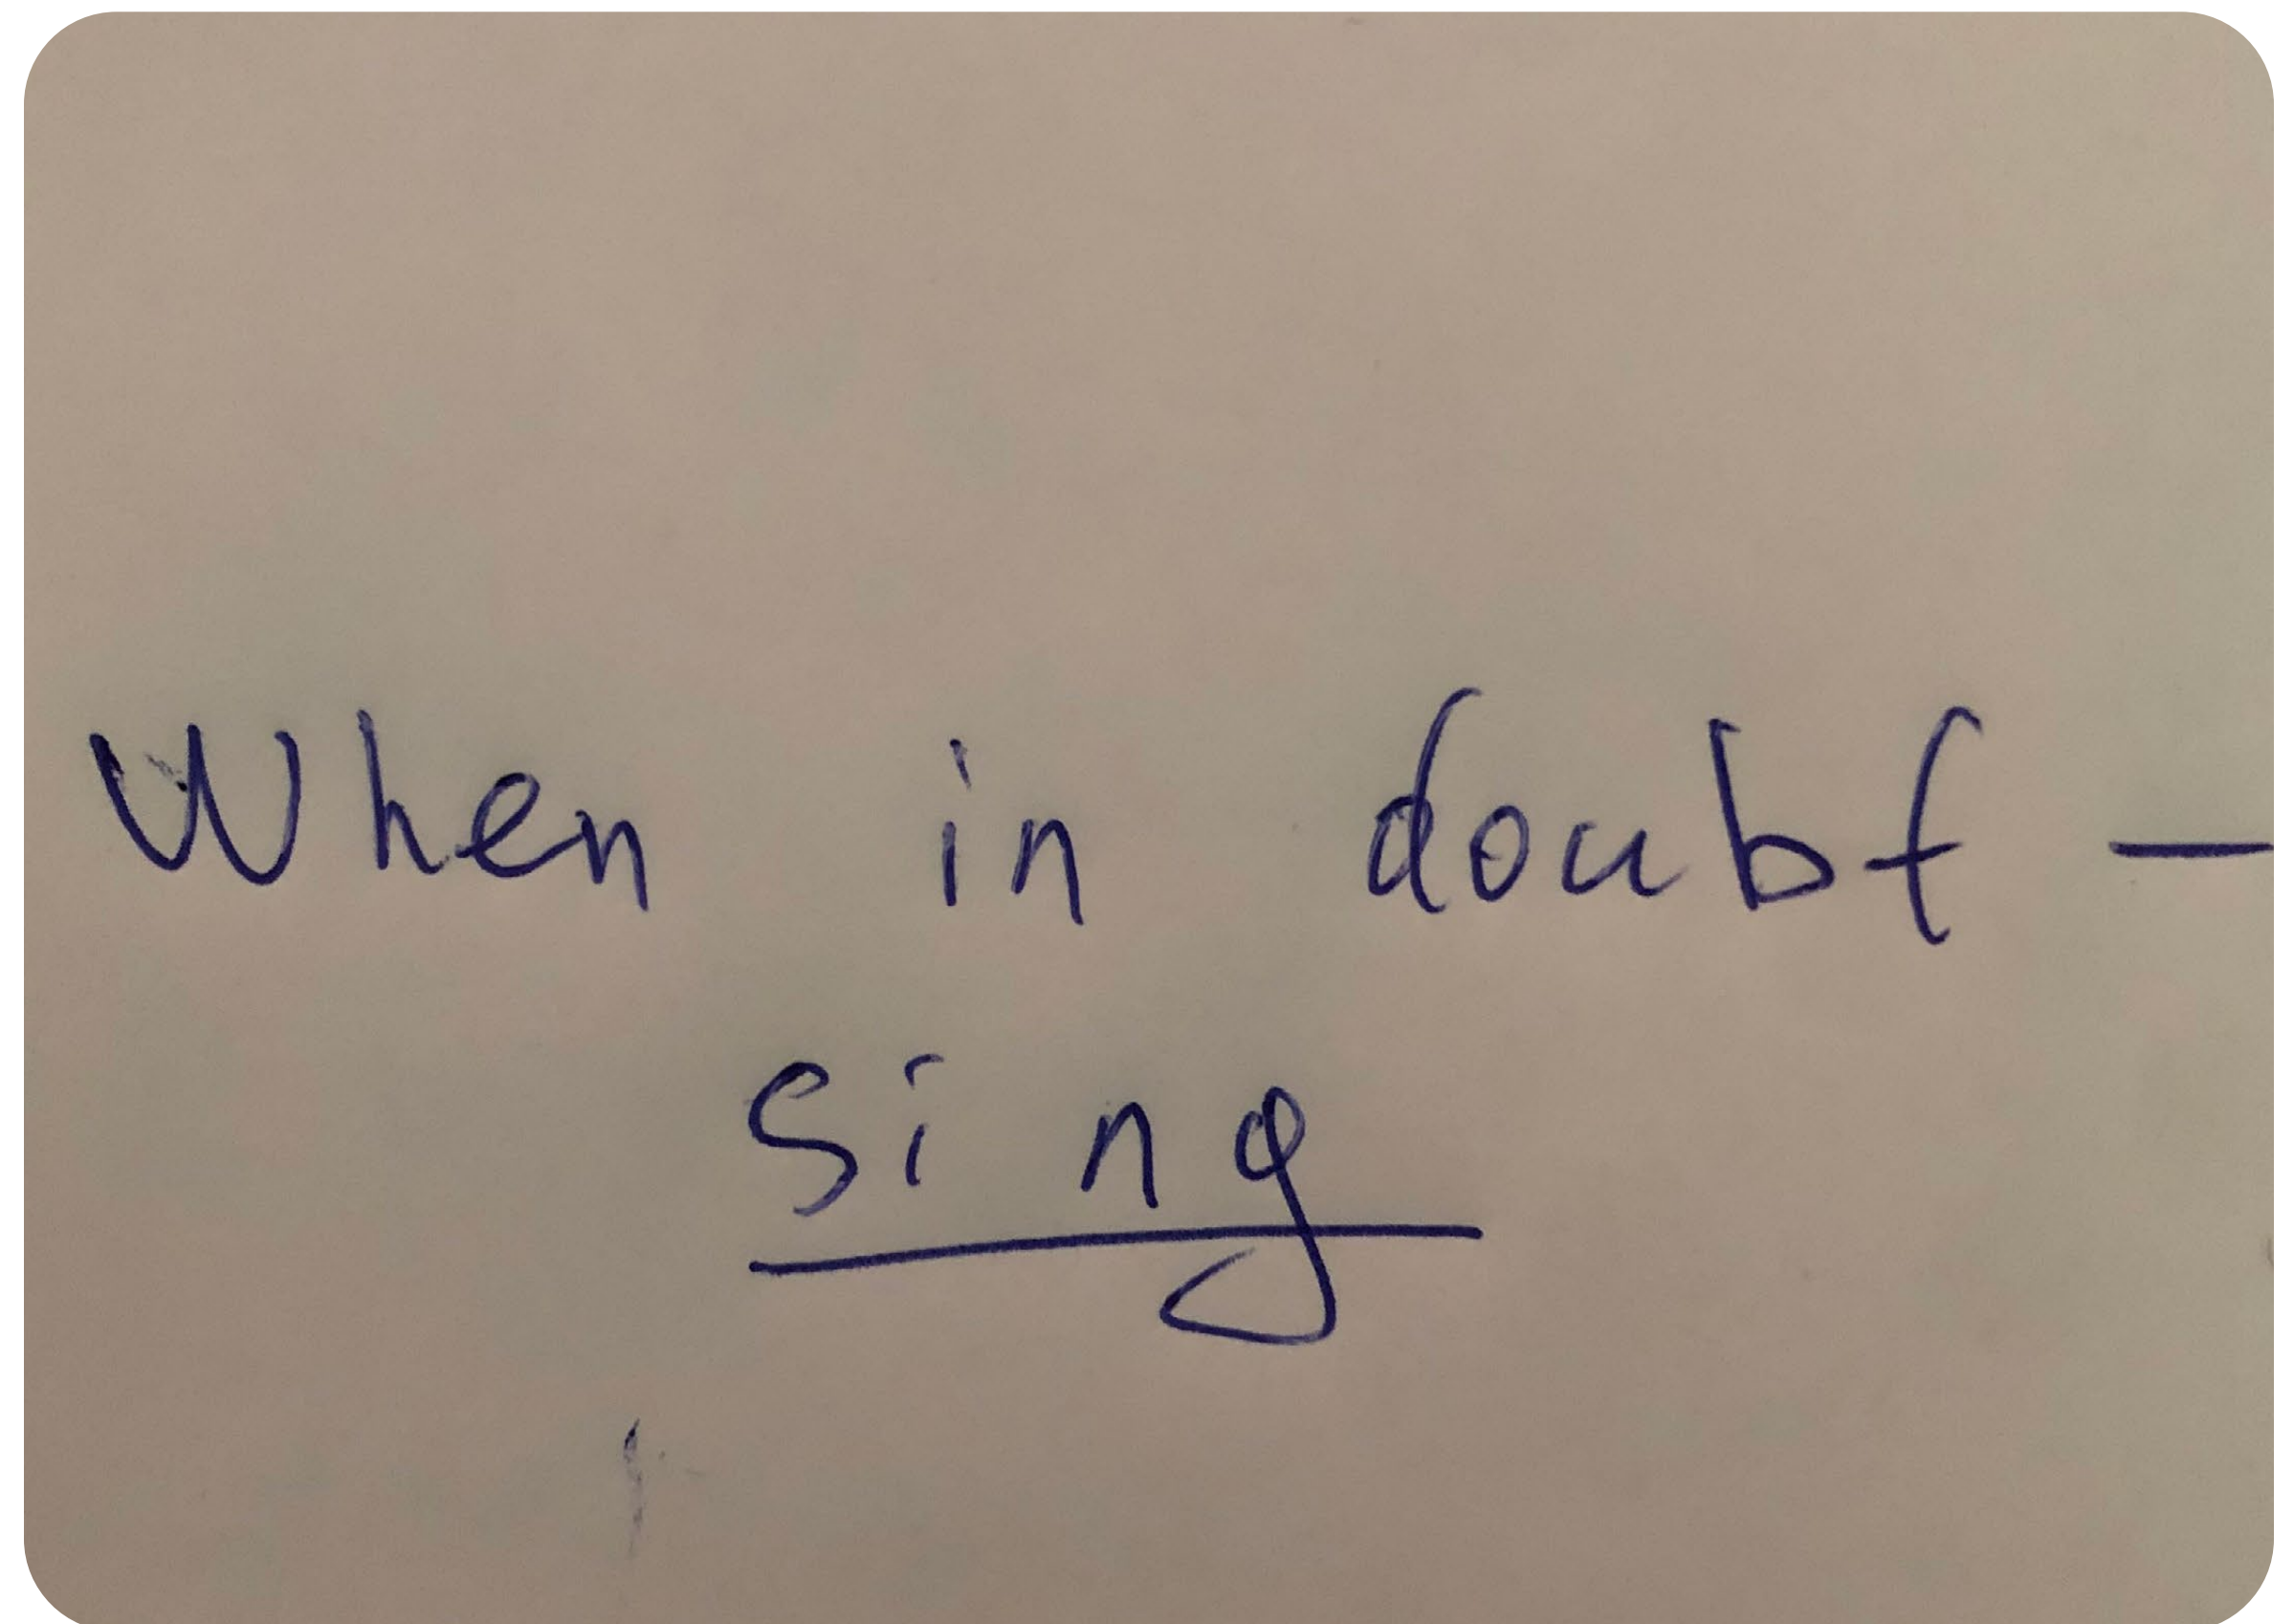 When in doubt —
sing